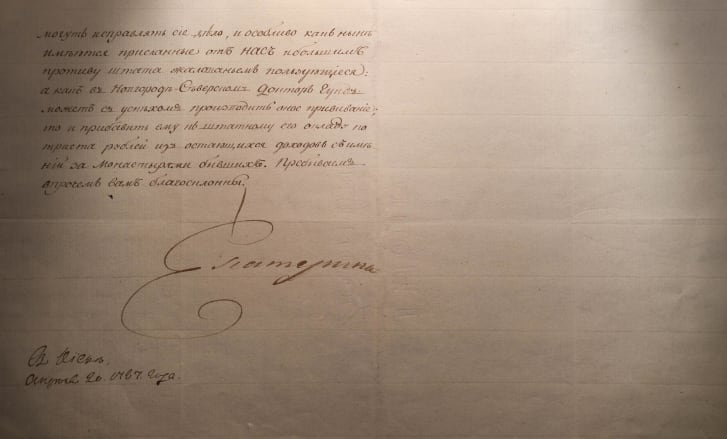 могутъ исправлять сіе дѣло, и особливо какъ нынѣ
имѣются присланные отъ НАСЪ и большимъ
противу штата жалованьемъ пользующіеся:
а какъ въ Новгородѣ-Сѣверскомъ Докторъ
можетъ съ успѣхомъ производить оное прививаніе;
то и прибавить ему къ штатному его окладу по
триста рублей изъ остающихся доходовъ съ имѣ-
ній за Монастырями бывшихъ. Пребываемъ
впрочемъ вамъ благосклонны.
Екатерина
Въ Кіевѣ.
Апрѣля 20. 1787. года.